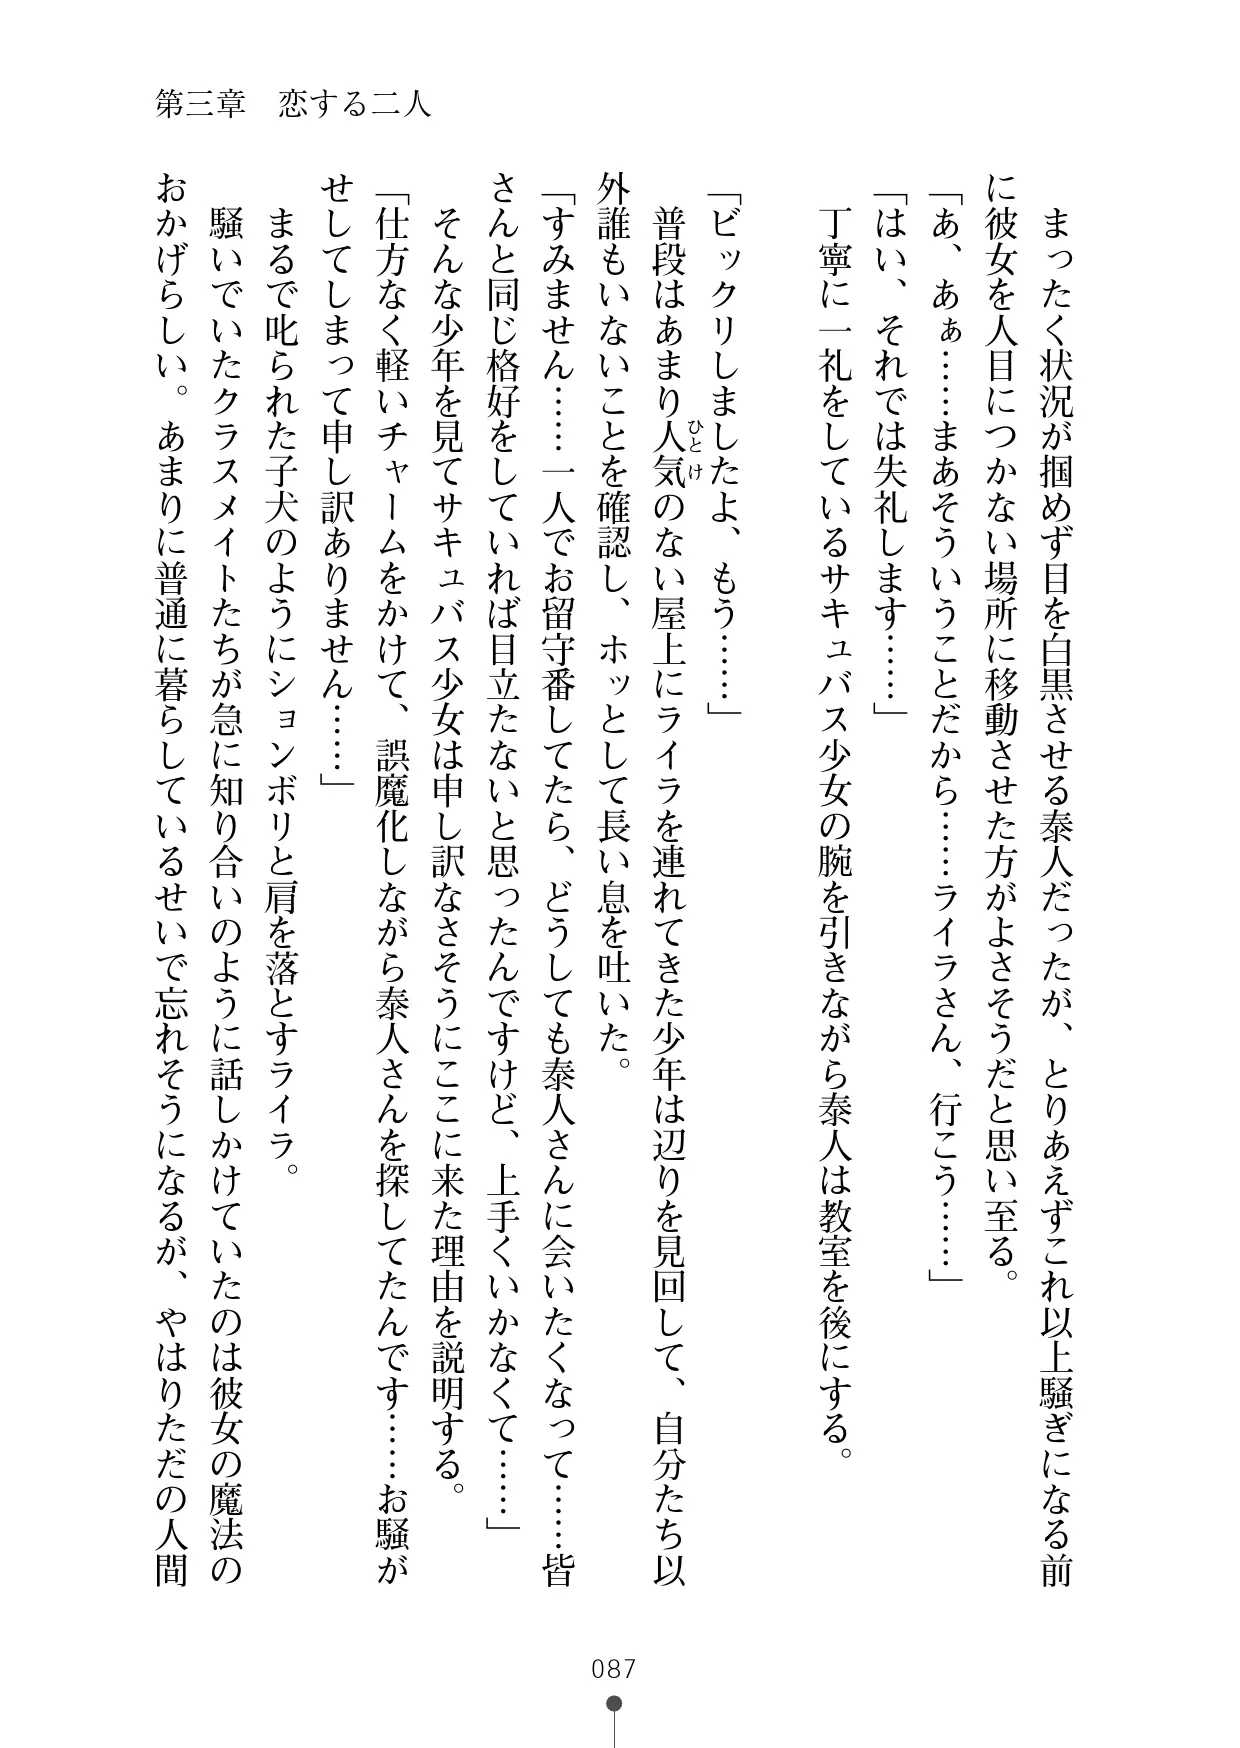 第三章　恋する二人
　まったく状況が掴めず目を白黒させる泰人だったが、とりあえずこれ以上騒ぎになる前
に彼女を人目につかない場所に移動させた方がよさそうだと思い至る。
「あ、あぁ……まあそういうことだから……ライラさん、行こう……」
「はい、それでは失礼します……」
　丁寧に一礼をしているサキュバス少女の腕を引きながら泰人は教室を後にする。
「ビックリしましたよ、もう……」
　普段はあまり人気のない屋上にライラを連れてきた少年は辺りを見回して、自分たち以
ひとけ
外誰もいないことを確認し、ホッとして長い息を吐いた。
「すみません……一人でお留守番してたら、どうしても泰人さんに会いたくなって……皆
さんと同じ格好をしていれば目立たないと思ったんですけど、上手くいかなくて……」
　そんな少年を見てサキュバス少女は申し訳なさそうにここに来た理由を説明する。
「仕方なく軽いチャームをかけて、誤魔化しながら泰人さんを探してたんです……お騒が
せしてしまって申し訳ありません……」
　まるで叱られた子犬のようにションボリと肩を落とすライラ。
　騒いでいたクラスメイトたちが急に知り合いのように話しかけていたのは彼女の魔法の
おかげらしい。あまりに普通に暮らしているせいで忘れそうになるが、やはりただの人間
087